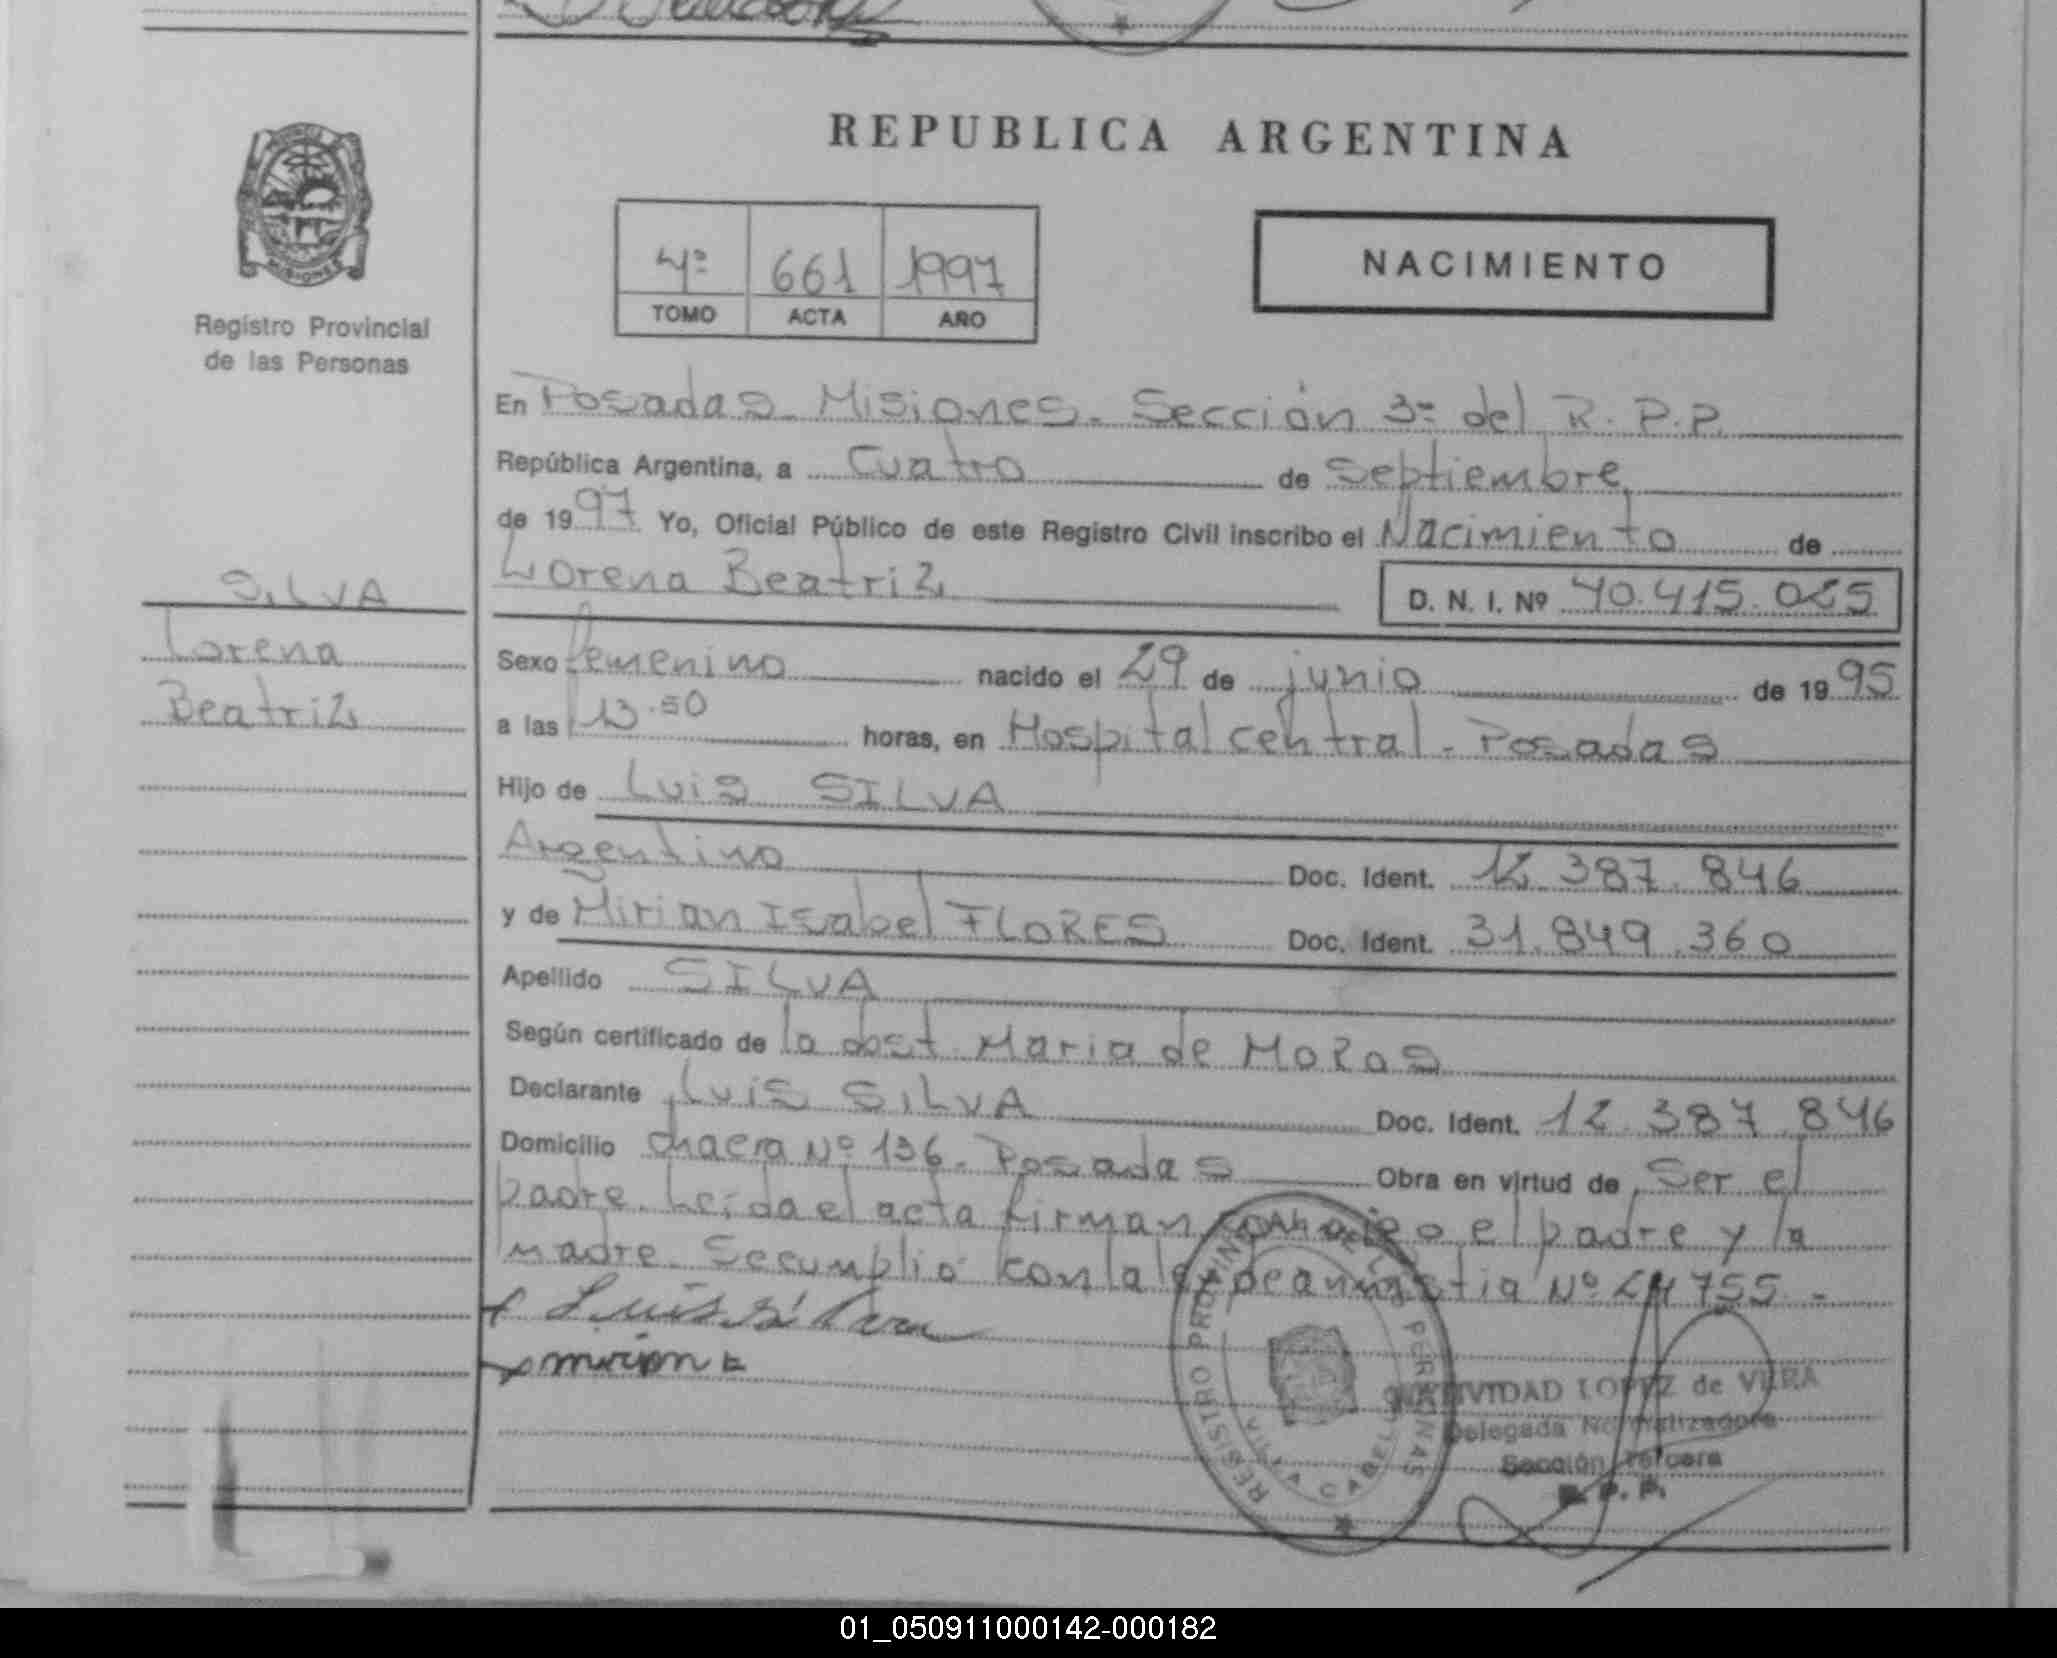 REPUBLICA ARGENTINA
PROVINCIA
MISIONES
Registro Provincial
de las Personas
4º 661 1997
TOMO ACTA AÑO
NACIMIENTO
En Posadas Misiones. Sección 3º del R.P.P.
República Argentina, a Cuatro de Septiembre
de 1997 Yo, Oficial Público de este Registro Civil inscribo el Nacimiento de
Lorena Beatriz D. N. I. Nº 40.415.025
SILVA
Lorena
Beatriz
Sexo femenino nacido el 29 de junio de 1995
a las 13.50 horas, en Hospital central - Posadas
Hijo de Luis SILVA
Argentino Doc. Ident. 12.387.846
y de Mirian Isabel FLORES Doc. Ident. 31.849.360
Apellido SILVA
Según certificado de la obst. Maria de Moras
Declarante Luis SILVA Doc. Ident. 12.387.846
Domicilio chacra Nº 136. Posadas Obra en virtud de Ser el
padre. Leída el acta firman conmigo el padre y la
madre. Se cumplió con la ley de amnistia Nº 24755.-
Luis Silva
mirian
REGISTRO PROVINCIAL DE LAS PERSONAS
VILLA CABELLO
NATIVIDAD LOPEZ de VERA
Delegada Normalizadora
Sección Tercera
R. P. P.
01_050911000142-000182